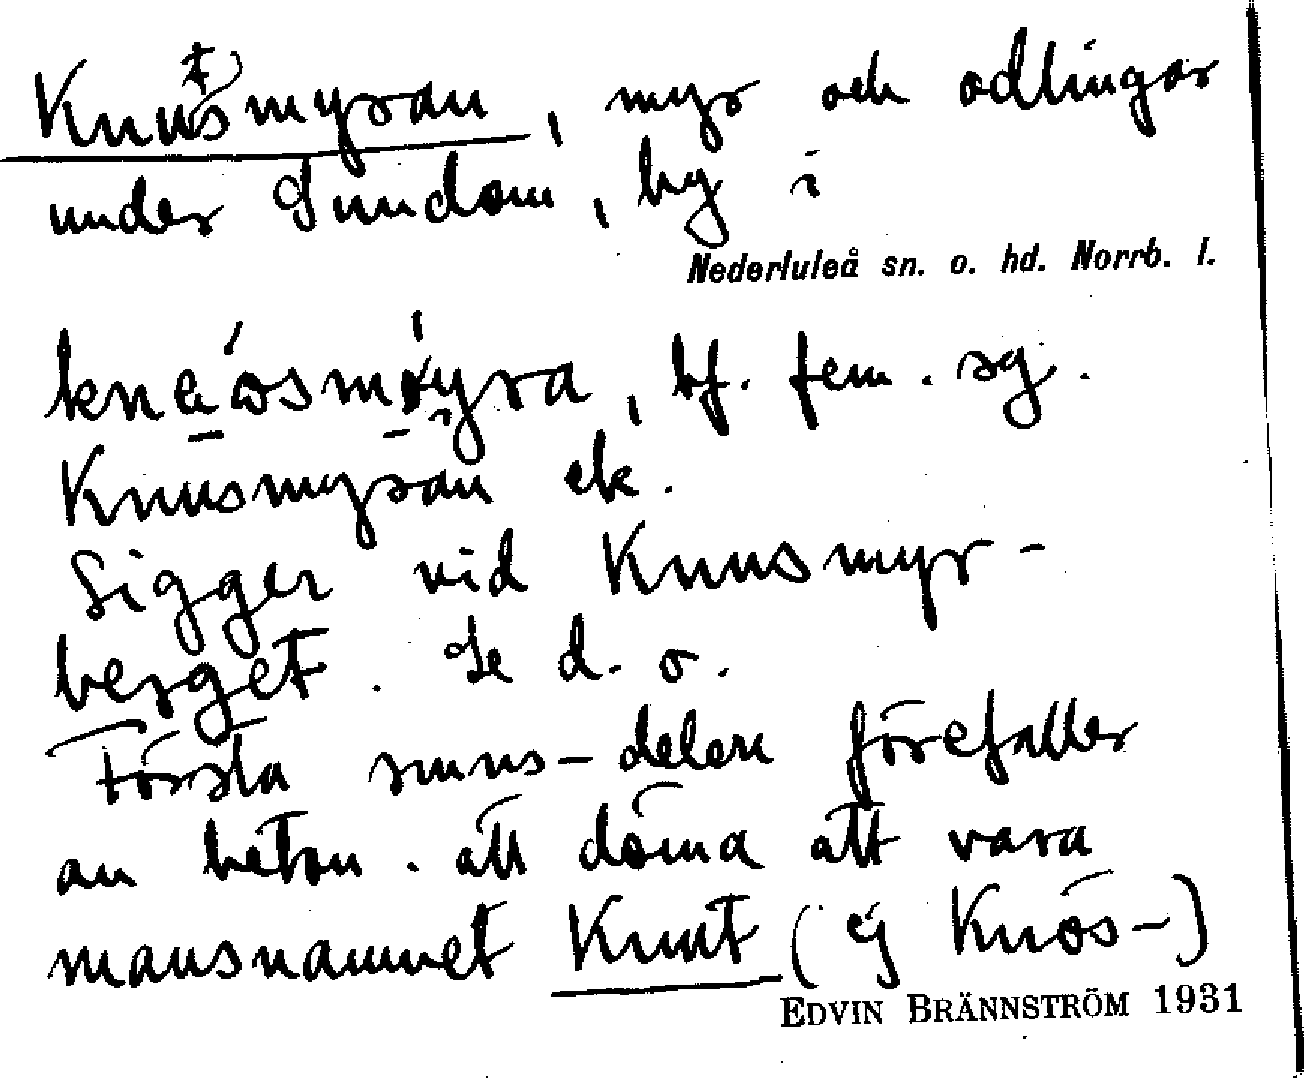 Knutsmyran, myr och odlingar
under Sundom, by i
Nederluleå sn. o. hd. Norrb. l.
bf. fem. sg.
Knusmyran ek.
Ligger vid Knusmyr-
berget. Se d. o.
Första smns-delen förefaller
av beton. att döma att vara
mansnamnet Knut (ej Knös-)
EDVIN BRÄNNSTRÖM 1931